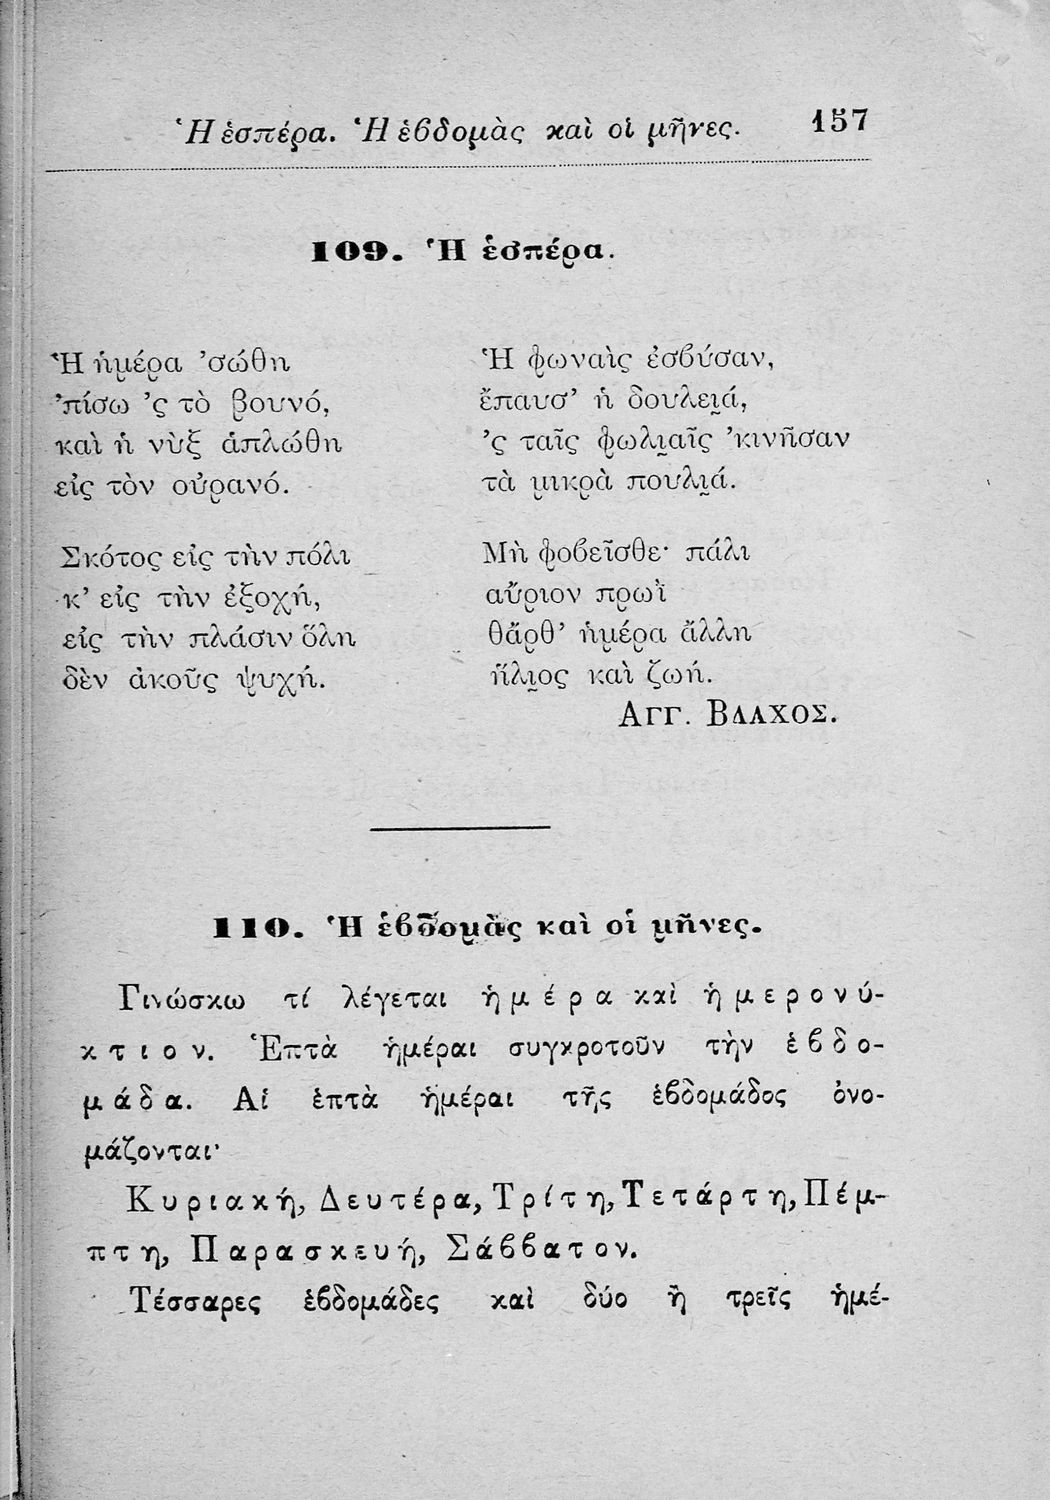 Ἡ ἑσπέρα. Ἡ ἑβδομὰς καὶ οἱ μῆνες. 157
109. Ἡ ἑσπέρα.
Ἡ ἡμέρα ’σώθη
’πίσω ’ς τὸ βουνό,
καὶ ἡ νὺξ ἁπλώθη
εἰς τὸν οὐρανό.
Σκότος εἰς τὴν πόλι
κ’ εἰς τὴν ἐξοχή,
εἰς τὴν πλάσιν ὅλη
δὲν ἀκοῦς ψυχή.
Ἡ φωναὶς ἐσβύσαν,
ἔπαυσ’ ἡ δουλειά,
’ς ταῖς φωλιαῖς ’κινῆσαν
τὰ μικρὰ πουλιά.
Μὴ φοβεῖσθε· πάλι
αὔριον πρωῒ
θἄρθ’ ἡμέρα ἄλλη
ἥλιος καὶ ζωή.
ΑΓΓ. ΒΛΑΧΟΣ.
110. Ἡ ἑβδομὰς καὶ οἱ μῆνες.
Γινώσκω τί λέγεται ἡμέρα καὶ ἡμερονύ-
κτιον. Ἑπτὰ ἡμέραι συγκροτοῦν τὴν ἑβδο-
μάδα. Αἱ ἑπτὰ ἡμέραι τῆς ἑβδομάδος ὀνο-
μάζονται·
Κυριακή, Δευτέρα, Τρίτη, Τετάρτη, Πέμ-
πτη, Παρασκευή, Σάββατον.
Τέσσαρες ἑβδομάδες καὶ δύο ἢ τρεῖς ἡμέ-